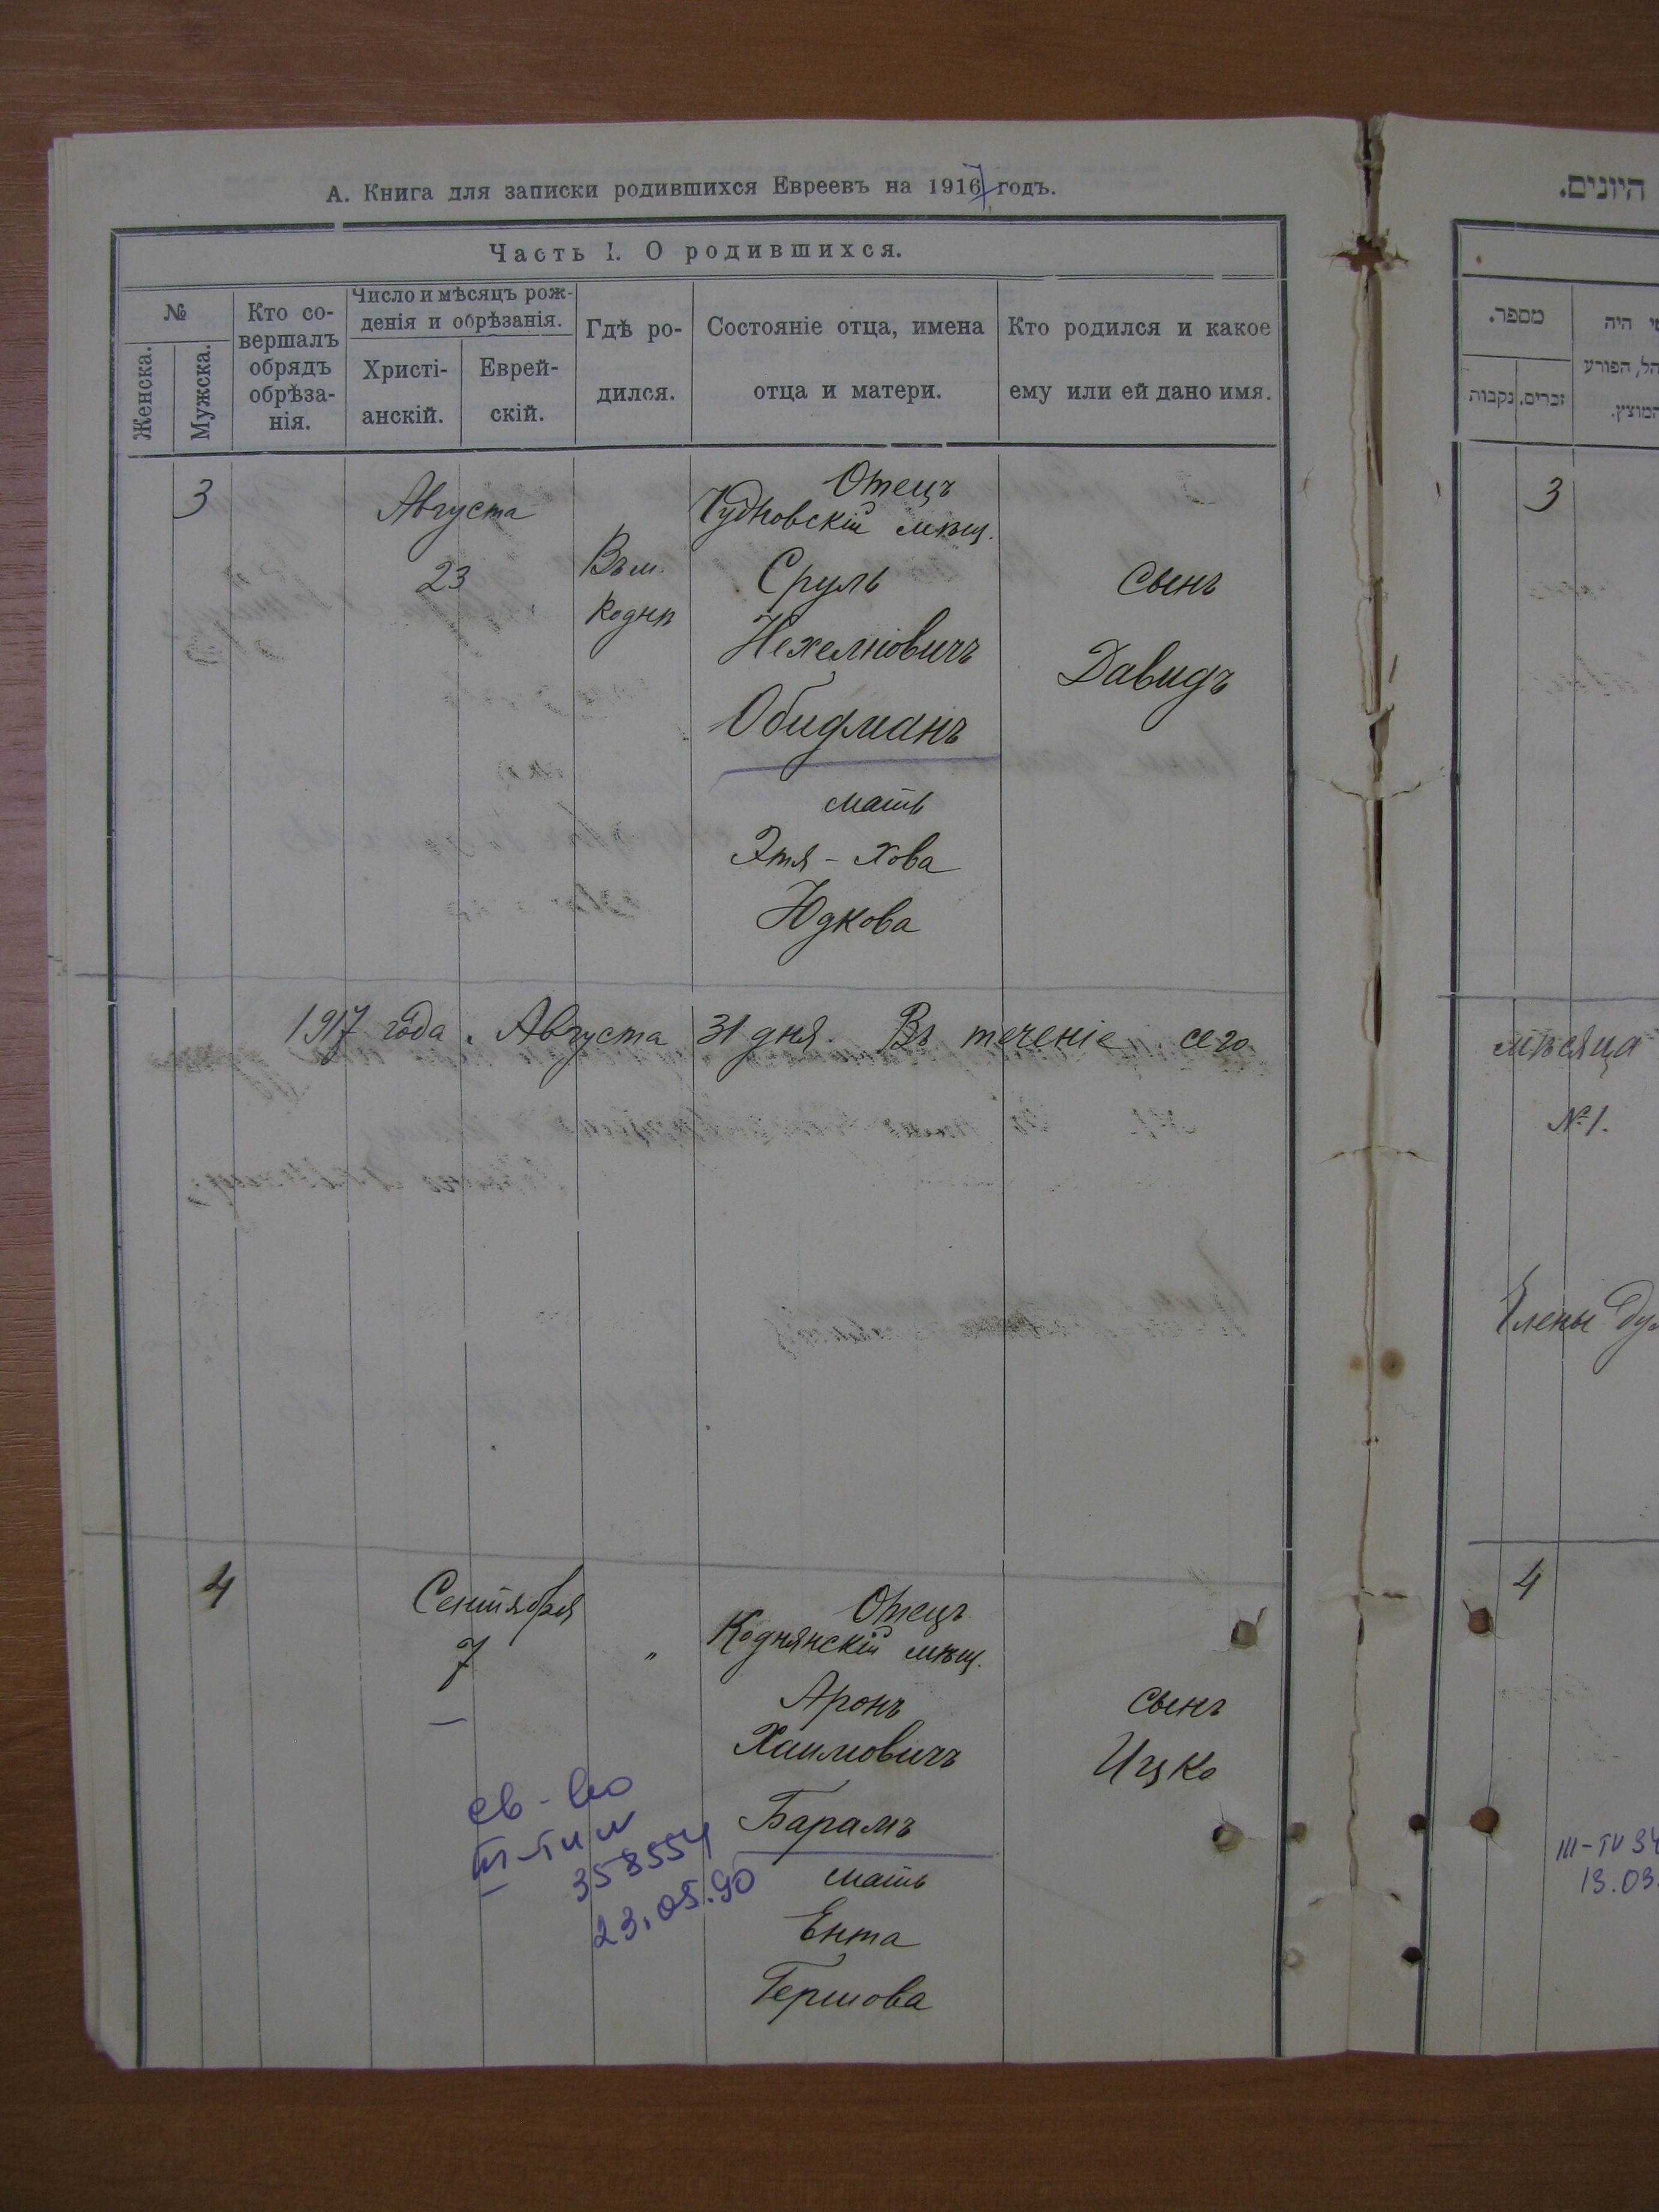 А. Книга для записки родившихся Евреевъ на 1917 годъ.
Часть I. О родившихся.
№
Женска.
Мужска.
Кто со-
вершалъ
обрядъ
обрѣза-
нія.
Число и мѣсяцъ рож-
денія и обрѣзанія.
Христі-
анскій.
Еврей-
скій.
Гдѣ ро-
дился.
Состояніе отца, имена
отца и матери.
Кто родился и какое
ему или ей дано имя.
3
Августа
23
Въ м.
Коднѣ
Отецъ
Чудновскій мѣщ.
Сруль
Нехемiовичъ
Обидманъ
мать
Этя - Хова
Юдкова
сынъ
Давидъ
1917 года. Августа 31 дня. Въ теченіе сего
4
Сентября
7
"
Отецъ
Коднянскій мѣщ.
Аронъ
Хаимовичъ
Барамъ
мать
Ента
Гершова
сынъ
Ицко
св-во
III-ТИ №
358554
23.05.90
היונים.
מספר.
זכרים. נקבות
היה
הפורע
3
мѣсяца
№ 1.
Члены
4
III-ТИ 34
13.03.